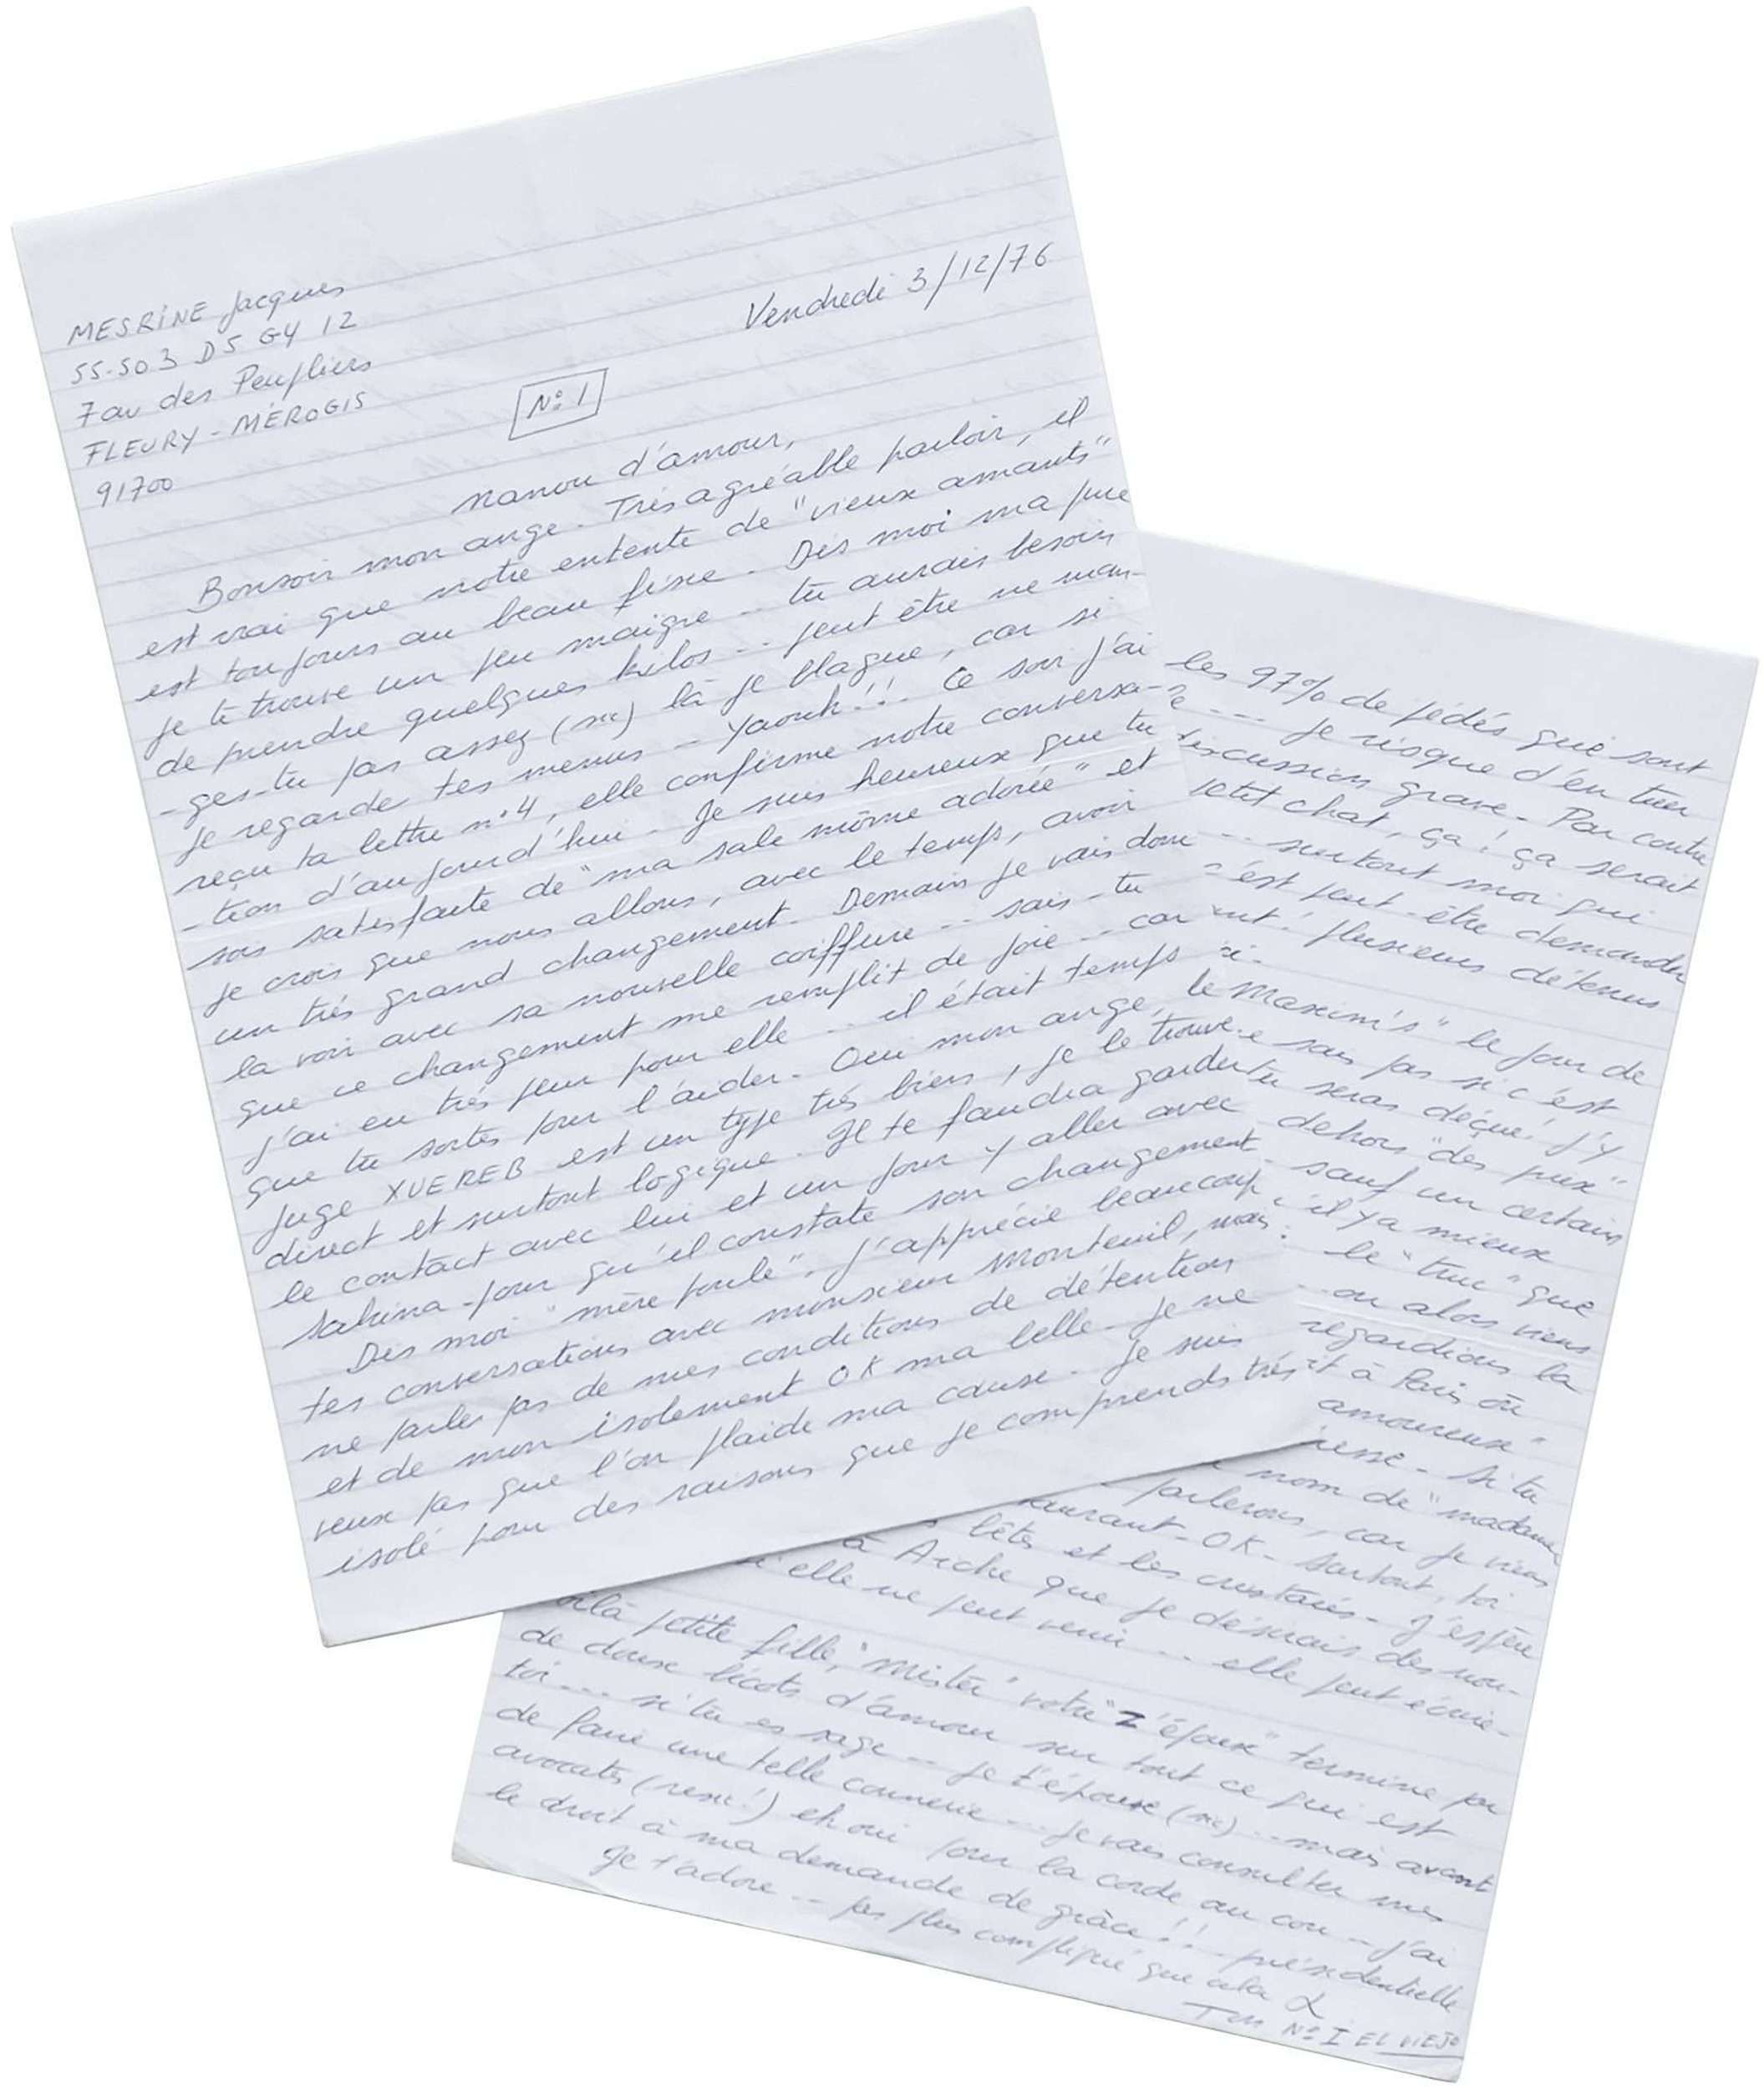 MESRINE Jacques
55-503 D5 G4 12
7 av des Peupliers
FLEURY-MÉROGIS
91700
Vendredi 3/12/76
N° 1
Nanou d'amour,
Bonsoir mon ange. Très agréable parloir, il
est vrai que notre entente de "vieux amants"
est toujours au beau fixe. Dis moi ma puce
je te trouve un peu maigre -- tu aurais besoin
de prendre quelques kilos -- peut être ne man-
-ges-tu pas assez (sic) là je blague, car si
je regarde tes menus - Yaouh!!. Ce soir j'ai
reçu ta lettre n°4, elle confirme notre conversa-
-tion d'aujourd'hui. Je suis heureux que tu
sois satisfaite de "ma sale môme adorée" et
je crois que nous allons, avec le temps, avoir
un très grand changement. Demain je vais donc
la voir avec sa nouvelle coiffure -- sais-tu
que ce changement me remplit de joie -- car
j'ai eu très peur pour elle -- il était temps
que tu sortes pour l'aider. Oui mon ange, le
juge XUEREB est un type très bien, je le trouve
direct et surtout logique. Il te faudra garder
le contact avec lui et un jour y aller avec
Sabrina pour qu'il constate son changement.
Dis moi "mère poule", j'apprécie beaucoup
tes conversations avec monsieur Monteuil, mais
ne parles pas de mes conditions de détention
et de mon isolement OK ma belle. Je ne
veux pas que l'on plaide ma cause. Je suis
isolé pour des raisons que je comprends très
les 97% de pédés qui sont
je risque d'en tuer
discussion grave. Par contre
petit chat, ça! ça serait
-- surtout moi qui
c'est peut-être demander
plusieurs détenus
Maxim's" le jour de
sais pas si c'est
tu seras déçue! j'y
dehors "des prix"
sauf un certain
il y a mieux
le "truc" que
-- ou alors viens
regardions la
à Paris où
amoureux"
Si tu
nom de "madame
parlerons, car je viens
OK. Surtout, toi
bêtes et les crustacés. J'espère
à Arche que je désirais des nou-
elle ne peut venir -- elle peut écrire-
petite fille, "Mister" votre "Z'époux" termine par
de doux bécots d'amour sur tout ce qui est
toi --- si tu es sage -- je t'épouse (sic) -- mais avant
de faire une telle connerie -- je vais consulter mes
avocats (rexxx!) eh oui pour la corde au cou - j'ai
le droit à ma demande de grâce!! - présidentielle
Je t'adore -- pas plus compliqué que cela
Ton N° I EL VIEJO